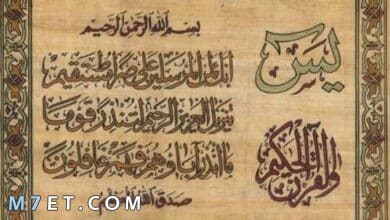 بسم الله الرحمن الرحيم
يس
والقرآن الحكيم
إنك لمن المرسلين على صراط مستقيم
تنزيل العزيز الرحيم لتنذر قوما
ما أنذر آباؤهم فهم غافلون
صدق الله العظيم
M7ET.COM